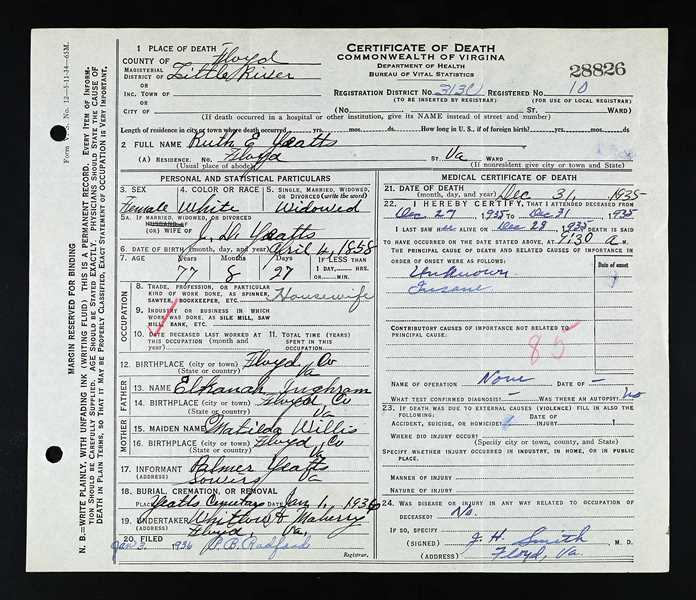 CERTIFICATE OF DEATH
COMMONWEALTH OF VIRGINIA
DEPARTMENT OF HEALTH
BUREAU OF VITAL STATISTICS
28826
1 PLACE OF DEATH
COUNTY OF Floyd
MAGISTERIAL DISTRICT OF Little River
OR INC. TOWN OF
OR CITY OF
REGISTRATION DISTRICT NO. 3130 REGISTERED NO. 10
(TO BE INSERTED BY REGISTRAR) (FOR USE OF LOCAL REGISTRAR)
(No. ST. WARD)
(If death occurred in a hospital or other institution, give its NAME instead of street and number)
Length of residence in city or town where death occurred yrs. mos. ds. How long in U. S., if of foreign birth? yrs. mos. ds.
2 FULL NAME Ruth E Yeatts
(A) RESIDENCE. No. Floyd ST. Va WARD
(Usual place of abode) (If nonresident give city or town and State)
PERSONAL AND STATISTICAL PARTICULARS
3. SEX 4. COLOR OR RACE 5. SINGLE, MARRIED, WIDOWED, OR DIVORCED (write the word)
Female White Widowed
5A. IF MARRIED, WIDOWED, OR DIVORCED
HUSBAND OF
(OR) WIFE OF J. D. Yeatts
6. DATE OF BIRTH (month, day, and year) April 4, 1858
7. AGE Years Months Days IF LESS THAN
77 8 27 1 DAY, HRS.
OR MIN.
OCCUPATION
8. TRADE, PROFESSION, OR PARTICULAR KIND OF WORK DONE, AS SPINNER, SAWYER, BOOKKEEPER, ETC. Housewife
9. INDUSTRY OR BUSINESS IN WHICH WORK WAS DONE, AS SILK MILL, SAW BANK, ETC.
10. DATE DECEASED LAST WORKED AT THIS OCCUPATION (month and year) 11. TOTAL YEARS (TIME) SPENT IN THIS OCCUPATION
12. BIRTHPLACE (city or town) Floyd Co
(State or country) Va
FATHER
13. NAME Elkanah Inghram
14. BIRTHPLACE (city or town) Floyd Co
(State or country) Va
MOTHER
15. MAIDEN NAME Matilda Willis
16. BIRTHPLACE (city or town) Floyd Co
(State or country) Va
17. INFORMANT Palmer Yeatts
(ADDRESS) Sowers Va
18. BURIAL, CREMATION, OR REMOVAL
PLACE Yeatts Cemetery DATE Jan 1, 1936
19. UNDERTAKER Whitlow & Maberry
(ADDRESS) Floyd, Va,
20. FILED Jan 3, 1936 P. B. Radford
Registrar.
MEDICAL CERTIFICATE OF DEATH
21. DATE OF DEATH (month, day, and year) Dec 31, 1935
22. I HEREBY CERTIFY, THAT I ATTENDED DECEASED FROM
Dec 27, 1935 TO Dec 31, 1935
I LAST SAW ALIVE ON Dec 28, 1935 DEATH IS SAID
TO HAVE OCCURRED ON THE DATE STATED ABOVE, AT 9:30 a M.
THE PRINCIPAL CAUSE OF DEATH AND RELATED CAUSES OF IMPORTANCE IN
ORDER OF ONSET WERE AS FOLLOWS:
Date of onset
Unknown
Insane
CONTRIBUTORY CAUSES OF IMPORTANCE NOT RELATED TO
PRINCIPAL CAUSE:
85
NAME OF OPERATION None DATE OF –
WHAT TEST CONFIRMED DIAGNOSIS? – WAS THERE AN AUTOPSY? no
23. IF DEATH WAS DUE TO EXTERNAL CAUSES (VIOLENCE) FILL IN ALSO THE
FOLLOWING:
ACCIDENT, SUICIDE, OR HOMICIDE? DATE OF INJURY 1
WHERE DID INJURY OCCUR?
(Specify city or town, county, and State)
SPECIFY WHETHER INJURY OCCURRED IN INDUSTRY, IN HOME, OR IN PUBLIC
PLACE.
MANNER OF INJURY
NATURE OF INJURY
24. WAS DISEASE OR INJURY IN ANY WAY RELATED TO OCCUPATION OF
DECEASED? No.
IF SO, SPECIFY
(SIGNED) J. H. Smith M. D.
(ADDRESS) Floyd, Va.
MARGIN RESERVED FOR BINDING
N. B.—WRITE PLAINLY, WITH UNFADING INK (WRITING FLUID) THIS IS A PERMANENT RECORD. EVERY ITEM OF INFORMATION SHOULD BE CAREFULLY SUPPLIED. AGE SHOULD BE STATED EXACTLY. PHYSICIANS SHOULD STATE THE CAUSE OF DEATH IN PLAIN TERMS, SO THAT IT MAY BE PROPERLY CLASSIFIED. EXACT STATEMENT OF OCCUPATION IS VERY IMPORTANT.